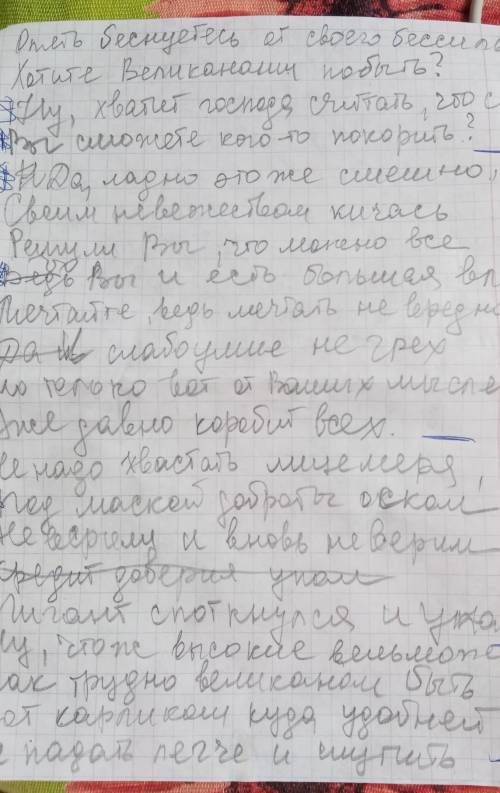 Опять беснуетесь от своего бесси
Хотите Великанами побыть?
Ну, хватит господа считать, что с
Вы сможете кого-то покорить?
Да, ладно это же смешно,
Своим невежеством кичась
Решили Вы, что можно все
Ведь Вы и есть большая вл
Мечтайте, ведь мечтать не вредно
Да слабоумие не грех
но только вот от Ваших мысле
же давно коробит всех.
е надо хвастать лицемеря,
под маской доброты оскал
Не верили и вновь не верим
Кредит доверия упал
Гигант споткнулся и
Ну, что ж высокие вельмож
ак трудно великаном быть
от карликом куда удобней
падать легче и шутить